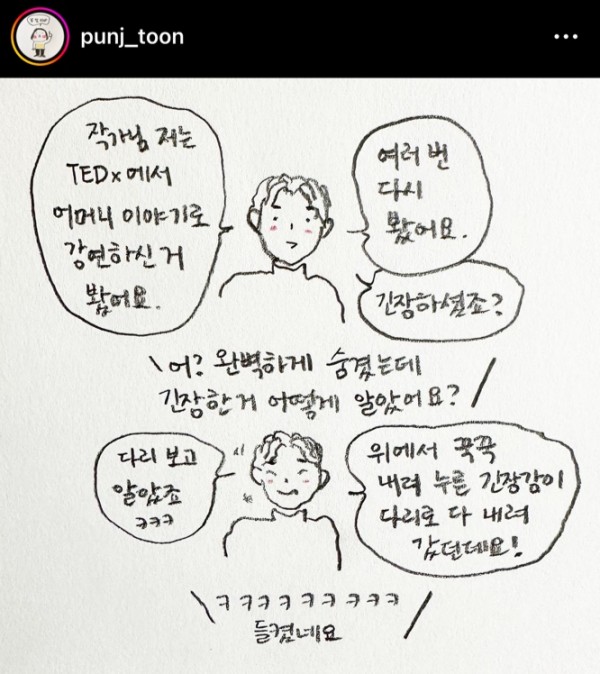 punj_toon
작가님 저는
TEDx에서
어머니 이야기로
강연하신 거
봤어요.
여러 번
다시
봤어요.
긴장하셨죠?
어? 완벽하게 숨겼는데
긴장한 거 어떻게 알았어요?
다리 보고
알았죠
ㅋㅋㅋ
위에서 꾹꾹
내려 누른 긴장감이
다리로 다 내려
갔던데요!
ㅋㅋㅋㅋㅋㅋㅋㅋ
들켰네요